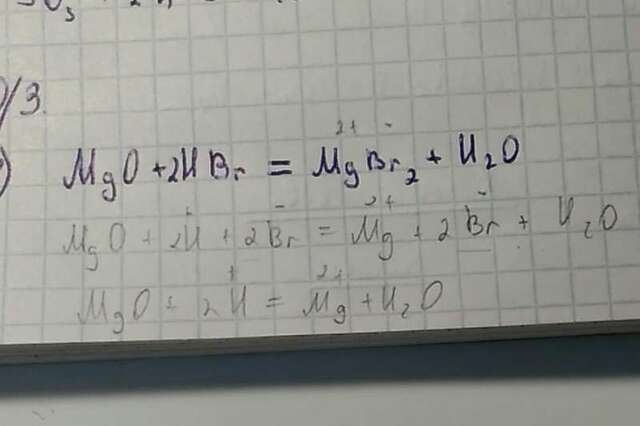 /3.
)
MgO + 2HBr = Mg²⁺Br⁻₂ + H₂O
MgO + 2H⁺ + 2Br⁻ = Mg²⁺ + 2Br⁻ + H₂O
MgO + 2H⁺ = Mg²⁺ + H₂O